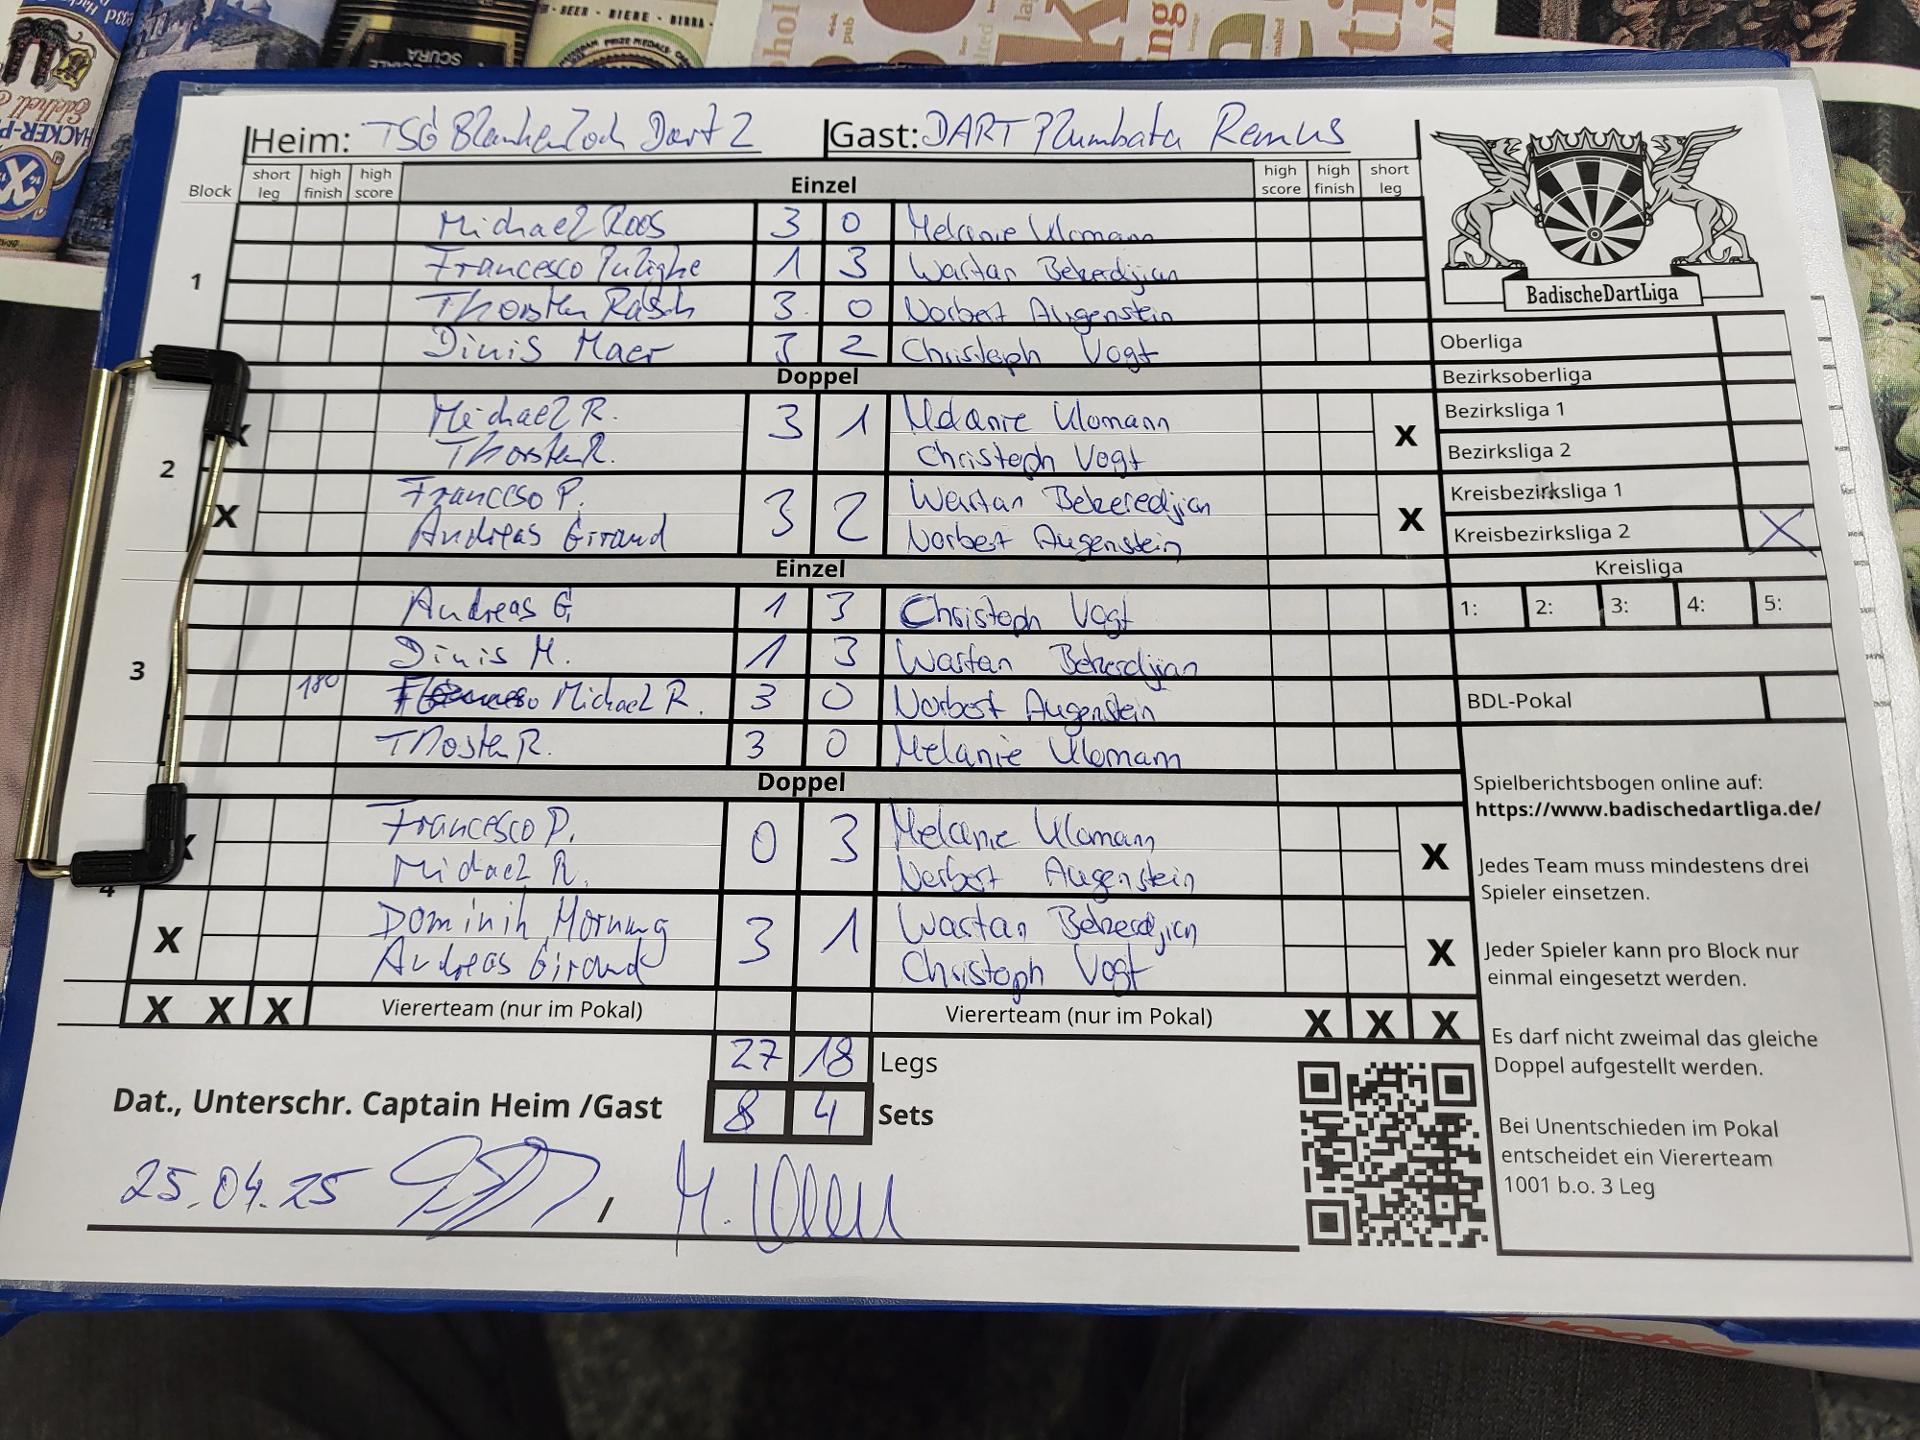 - BEER - BIERE - BIRRA -
SCURA
HACKER-P
pub
Heim: TSG Blankenloch Dart 2 Gast: DART Plumbata Remus
Block short leg high finish high score Einzel high score high finish short leg
1
Michael Roos 3 0 Melanie Ulomann
Francesco Pulighe 1 3 Wartan Bekerdjian
Thorsten Rasch 3 0 Norbert Augenstein
Dinis Maer 3 2 Christoph Vogt
Doppel
2
X Michael R. 3 1 Melanie Ulomann X
Thorsten R. Christoph Vogt
X Franceso P. 3 2 Wartan Bekeredjian X
Andreas Giraud Norbert Augenstein
Einzel
3
Andreas G. 1 3 Christoph Vogt
Dinis M. 1 3 Wartan Bekerdjian
180 Michael R. 3 0 Norbert Augenstein
Thosten R. 3 0 Melanie Ulomann
Doppel
4
X Francesco P. 0 3 Melanie Ulomann X
Michael R. Norbert Augenstein
X Dominik Hornung 3 1 Wartan Bekerdjian X
Andreas Giraud Christoph Vogt
X X X Viererteam (nur im Pokal) Viererteam (nur im Pokal) X X X
27 18 Legs
Dat., Unterschr. Captain Heim /Gast 8 4 Sets
25.04.25 /
BadischeDartLiga
Oberliga
Bezirksoberliga
Bezirksliga 1
Bezirksliga 2
Kreisbezirksliga 1
Kreisbezirksliga 2 X
Kreisliga
1: 2: 3: 4: 5:
BDL-Pokal
Spielberichtsbogen online auf:
https://www.badischedartliga.de/
Jedes Team muss mindestens drei
Spieler einsetzen.
Jeder Spieler kann pro Block nur
einmal eingesetzt werden.
Es darf nicht zweimal das gleiche
Doppel aufgestellt werden.
Bei Unentschieden im Pokal
entscheidet ein Viererteam
1001 b.o. 3 Leg